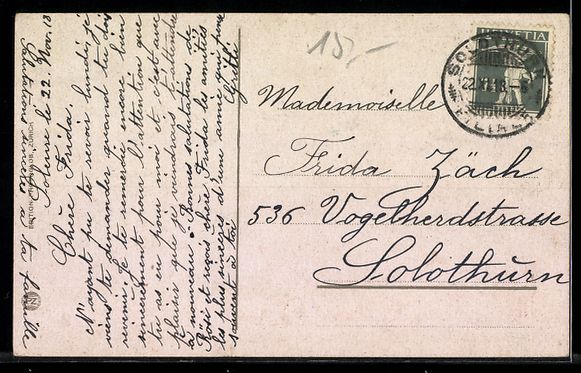 Soleure le 22. Nov. 18
Chère Frida.
N'ayant pu te revoir lundi, je
viens te demander quand tu dois
revenir. Je te remercie encore bien
sincèrement pour l'attention que
tu as eu pour moi et c'est avec
plaisir que je voudrais t'attendre
à nouveau. Bonnes salutations de
Rösi et reçois chère Frida les amitiés
les plus sincères d'une amie qui pense
souvent à toi
Gretti
Salutations à ta famille
15,-
HELVETIA
SOLOTHURN
22.XI.18.-8
Mademoiselle
Frida Zäch
536 Vogelherdstrasse
Solothurn